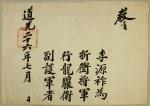 敎
李源祚爲
折衝將軍
行龍驤衛
副護軍者
道光二十六年七月 日